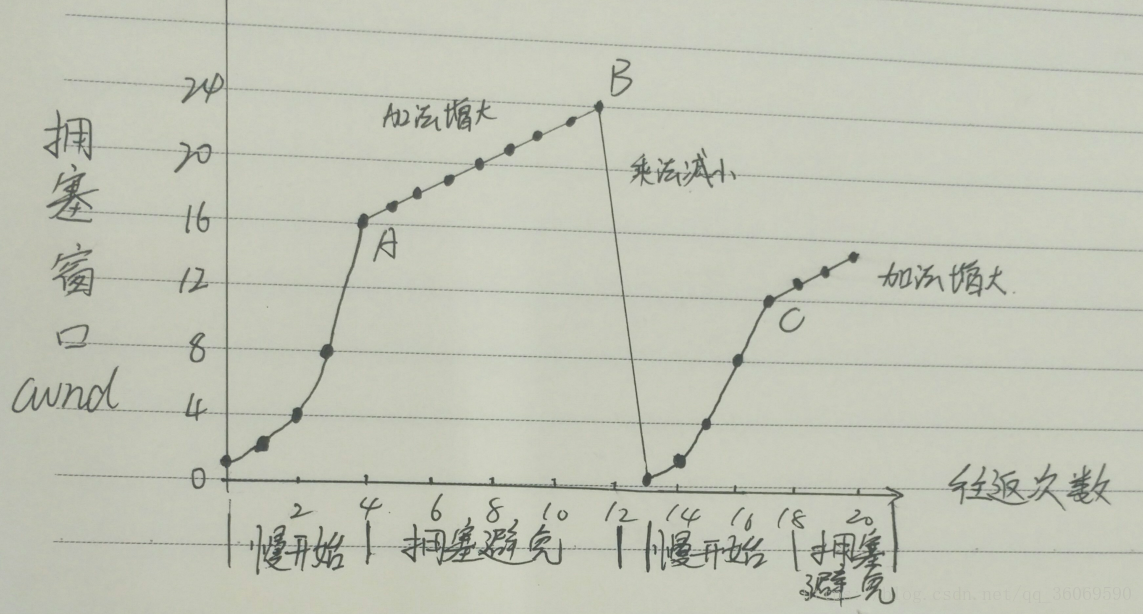 拥塞窗口
cwnd
24
20
16
12
8
4
0
加法增大
B
A
乘法减小
C
加法增大
往返次数
2 4 6 8 10 12 14 16 18 20
慢开始 拥塞避免 慢开始 拥塞避免
blog.csdn.net/qq_36069590